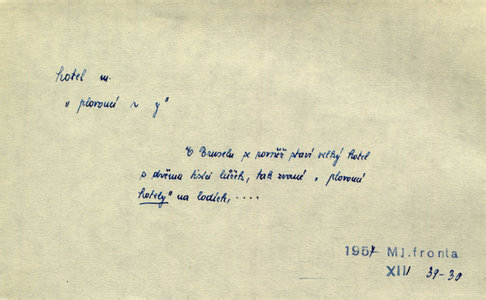 hotel m.
„plovoucí ~ y“
V Bruselu se rovněž staví velký hotel
s dvěma tisíci lůžek, tak zvané „plovoucí
hotely“ na lodích, ....
1957 Ml.fronta
XII/ 39-30